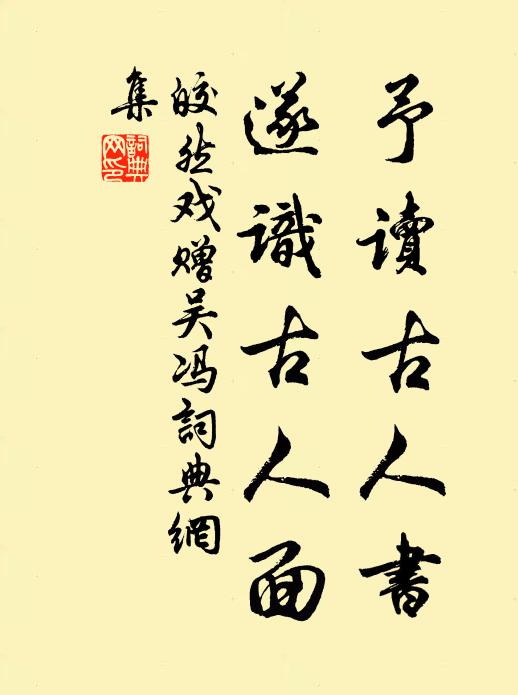 予讀古人書
遂識古人面
皎然戏赠吴冯詞典網
集
詞典
网印